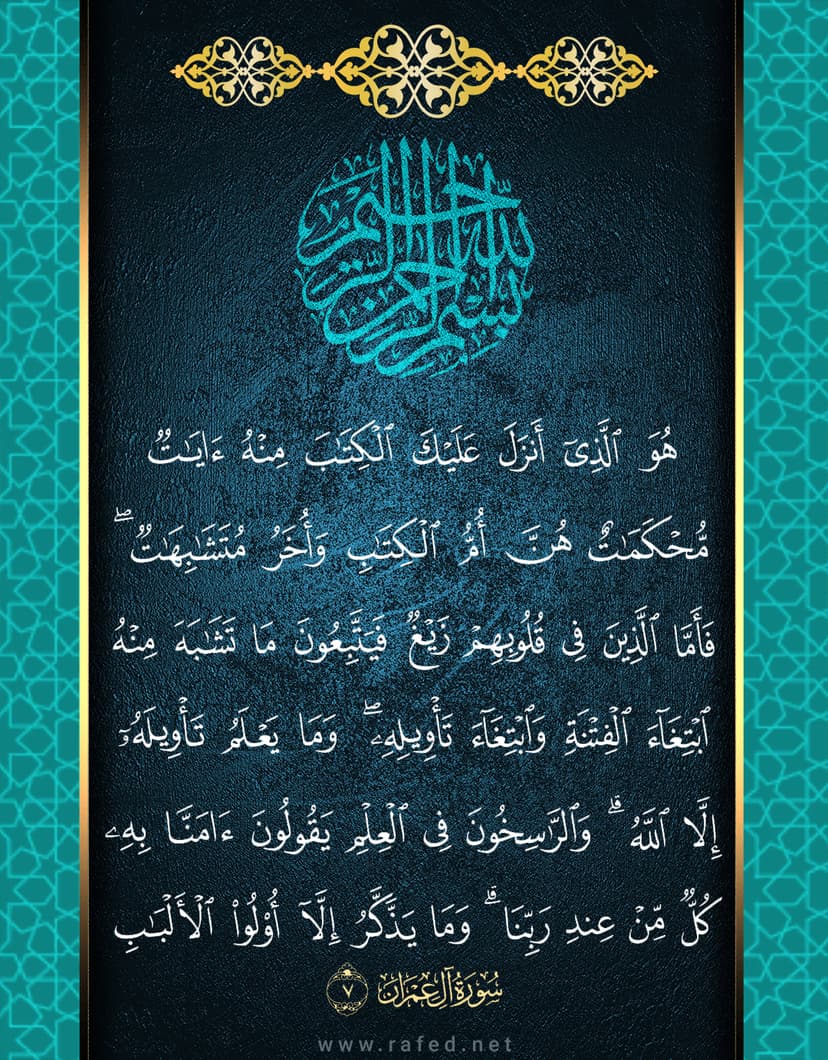 بِسْمِ اللَّهِ الرَّحْمَٰنِ الرَّحِيمِ
هُوَ ٱلَّذِىٓ أَنزَلَ عَلَيْكَ ٱلْكِتَٰبَ مِنْهُ ءَايَٰتٌ
مُّحْكَمَٰتٌ هُنَّ أُمُّ ٱلْكِتَٰبِ وَأُخَرُ مُتَشَٰبِهَٰتٌ ۖ
فَأَمَّا ٱلَّذِينَ فِى قُلُوبِهِمْ زَيْغٌ فَيَتَّبِعُونَ مَا تَشَٰبَهَ مِنْهُ
ٱبْتِغَآءَ ٱلْفِتْنَةِ وَٱبْتِغَآءَ تَأْوِيلِهِۦ ۖ وَمَا يَعْلَمُ تَأْوِيلَهُۥٓ
إِلَّا ٱللَّهُ ۗ وَٱلرَّٰسِخُونَ فِى ٱلْعِلْمِ يَقُولُونَ ءَامَنَّا بِهِۦ
كُلٌّ مِّنْ عِندِ رَبِّنَا ۗ وَمَا يَذَّكَّرُ إِلَّآ أُو۟لُوا۟ ٱلْأَلْبَٰبِ
سُورَةُ آلِ عِمْرَان ٧
www.rafed.net